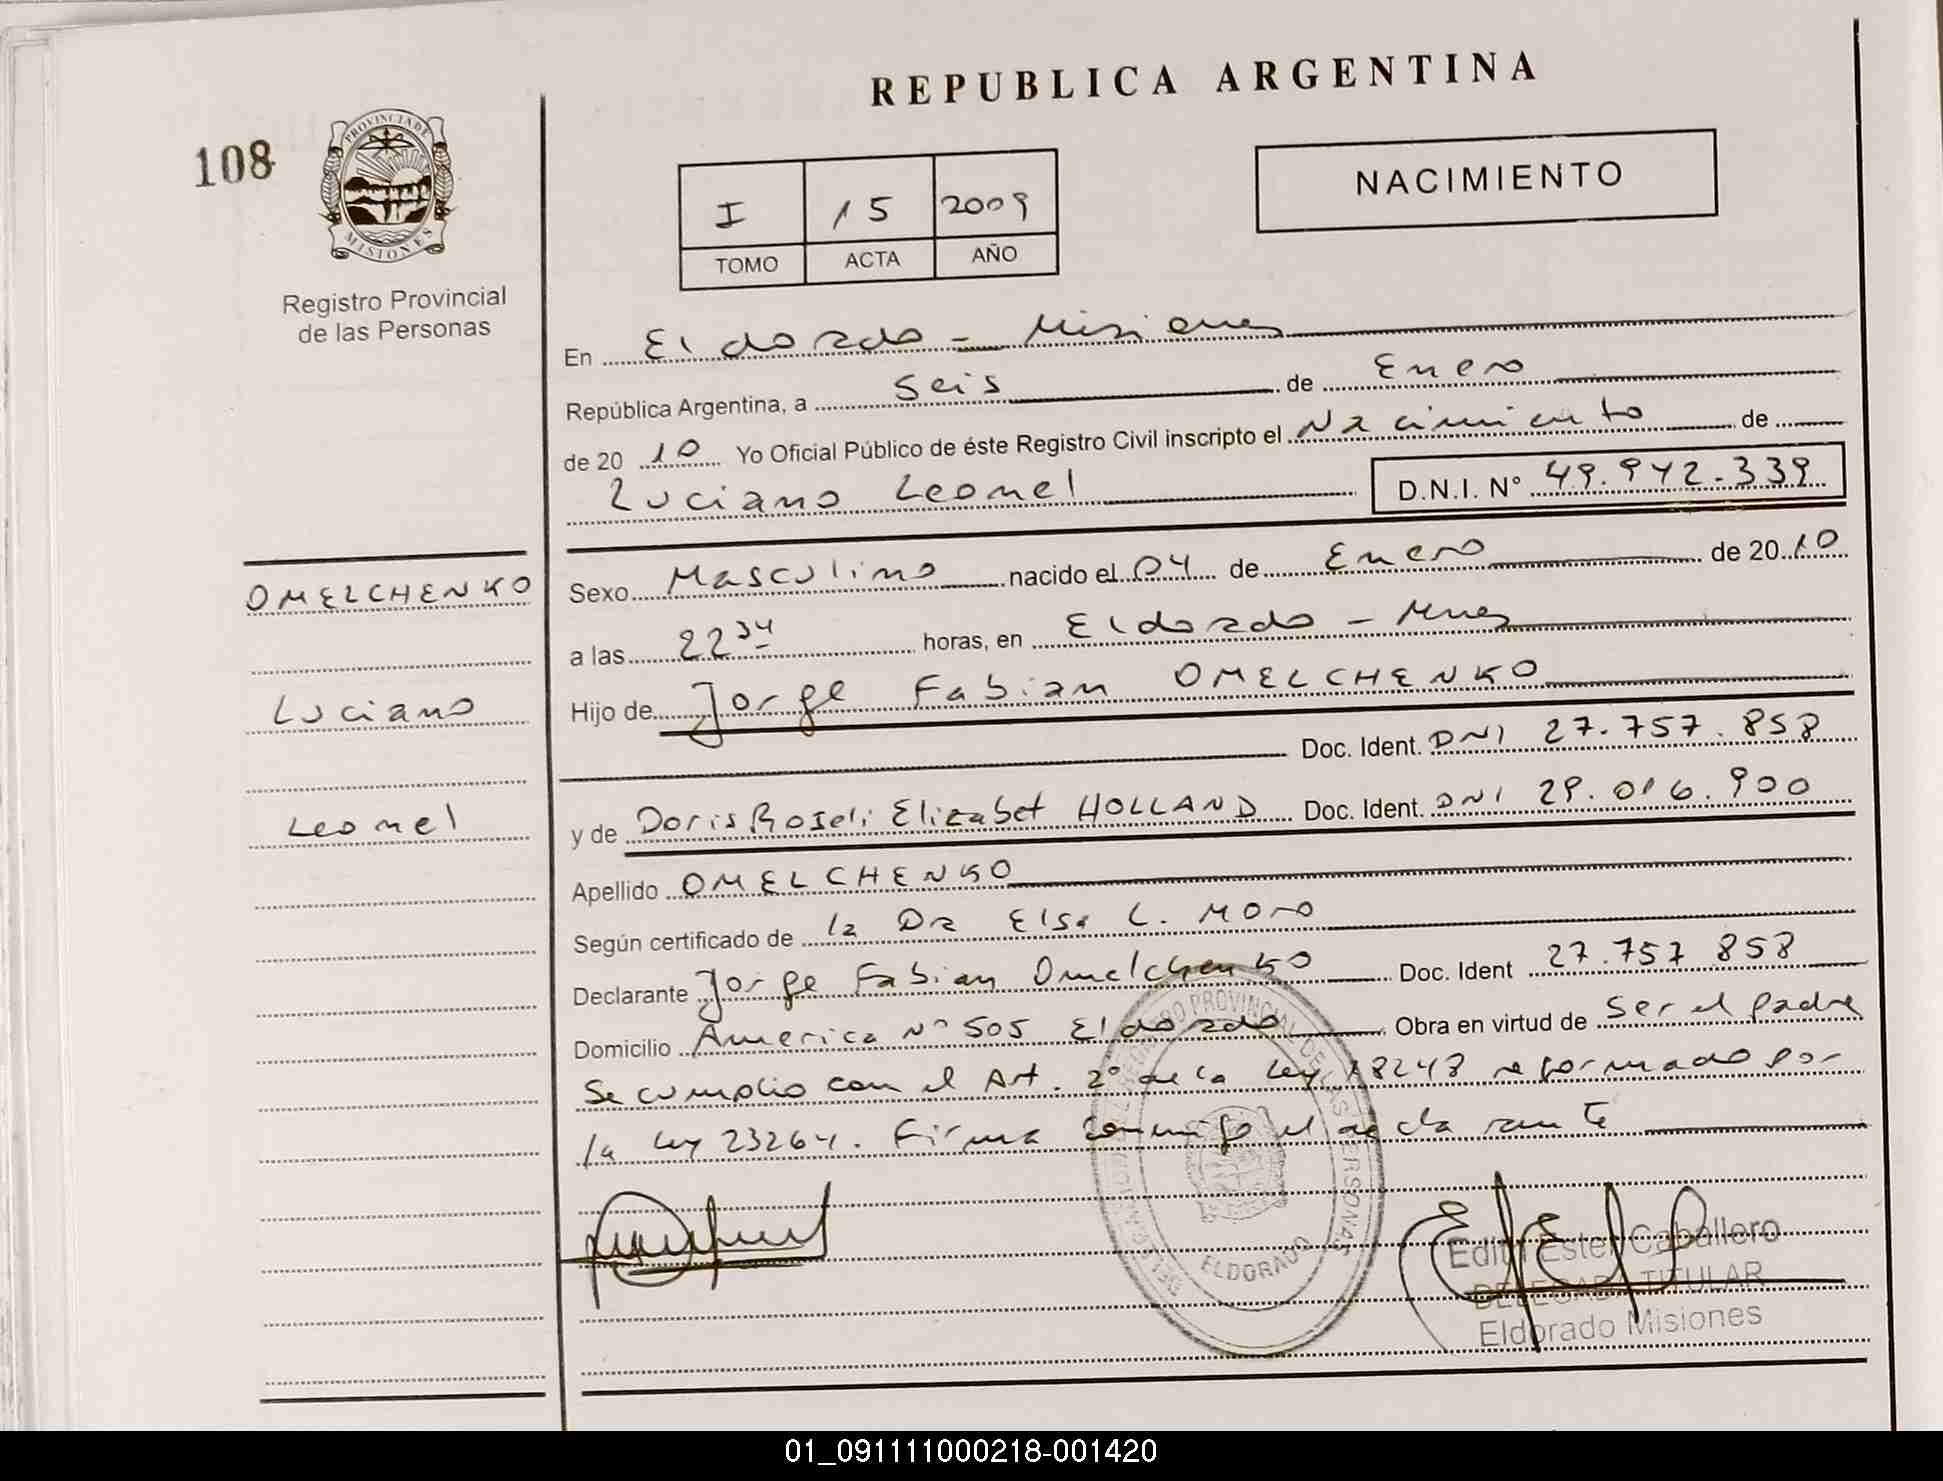 REPUBLICA ARGENTINA
108
PROVINCIA DE
MISIONES
Registro Provincial
de las Personas
I 15 2009
TOMO ACTA AÑO
NACIMIENTO
En Eldorado - Misiones
República Argentina, a Seis de Enero
de 20 10 Yo Oficial Público de éste Registro Civil inscripto el Nacimiento de
Luciano Leonel D.N.I. N° 49.942.339
OMELCHENKO
Luciano
Leonel
Sexo Masculino nacido el 04 de Enero de 20 10
a las 22 34 horas, en Eldorado - Mnes
Hijo de Jorge Fabian OMELCHENKO
Doc. Ident. DNI 27.757.858
y de Doris Roseli Elizabet HOLLAND Doc. Ident. DNI 29.016.900
Apellido OMELCHENKO
Según certificado de la Dra Elsa L. Moro
Declarante Jorge Fabian Omelchenko Doc. Ident 27.757 858
Domicilio America N° 505 Eldorado Obra en virtud de Ser el padre
Se cumplio con el Art. 2° de la Ley 18248 reformado por
la Ley 23264. Firma conmigo el declarante
REGISTRO PROVINCIAL DE LAS PERSONAS
ELDORADO
Edith Ester Caballero
DELEGADA TITULAR
Eldorado Misiones
01_091111000218-001420